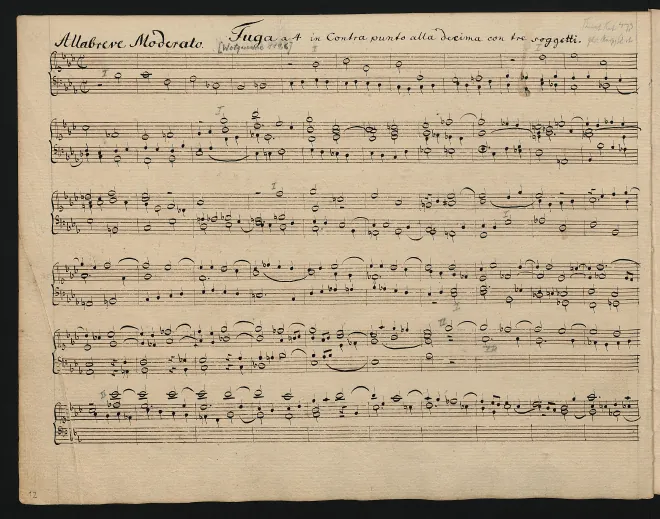 Allabreve Moderato. Fuga a 4 in Contra punto alla decima con tre soggetti.
I
II
I
I
I
I
II
II
III
II
12